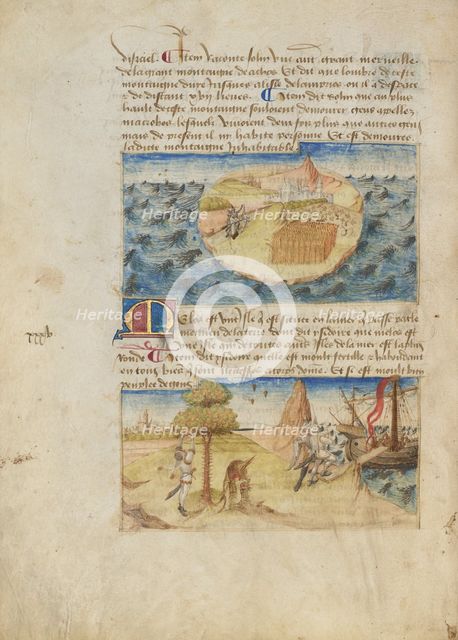 disrael. Item raconte solin une aut grant merueille
de la grant montaigne de athos Et dit que lombre de ceste
montaigne dure iusques a lisle de lempnos ou il a despace
de distant xvii lieues. Item dit solin que au plus
hault de ceste montaigne souloient demourer gens appelles
macrobes lesquelz viuoient deux fois plus que autres gens
mais de present il ny habite personne Et est demouree
ladite montaigne inhabitable
Melos est une isle et est situee en laquelle passe par le
de la terre dont dit ysidoire que melos est
une isle qui de toutes autres isles de la mer est la plus
ronde Item dit ysidoire quelle est moult fertille et habondant
en tous biens a corps dome Et si est moult bien
peuplee de gens
xxxv
Heritage
Heritage
Heritage
Heritage
Heritage
Heritage
Heritage
Heritage